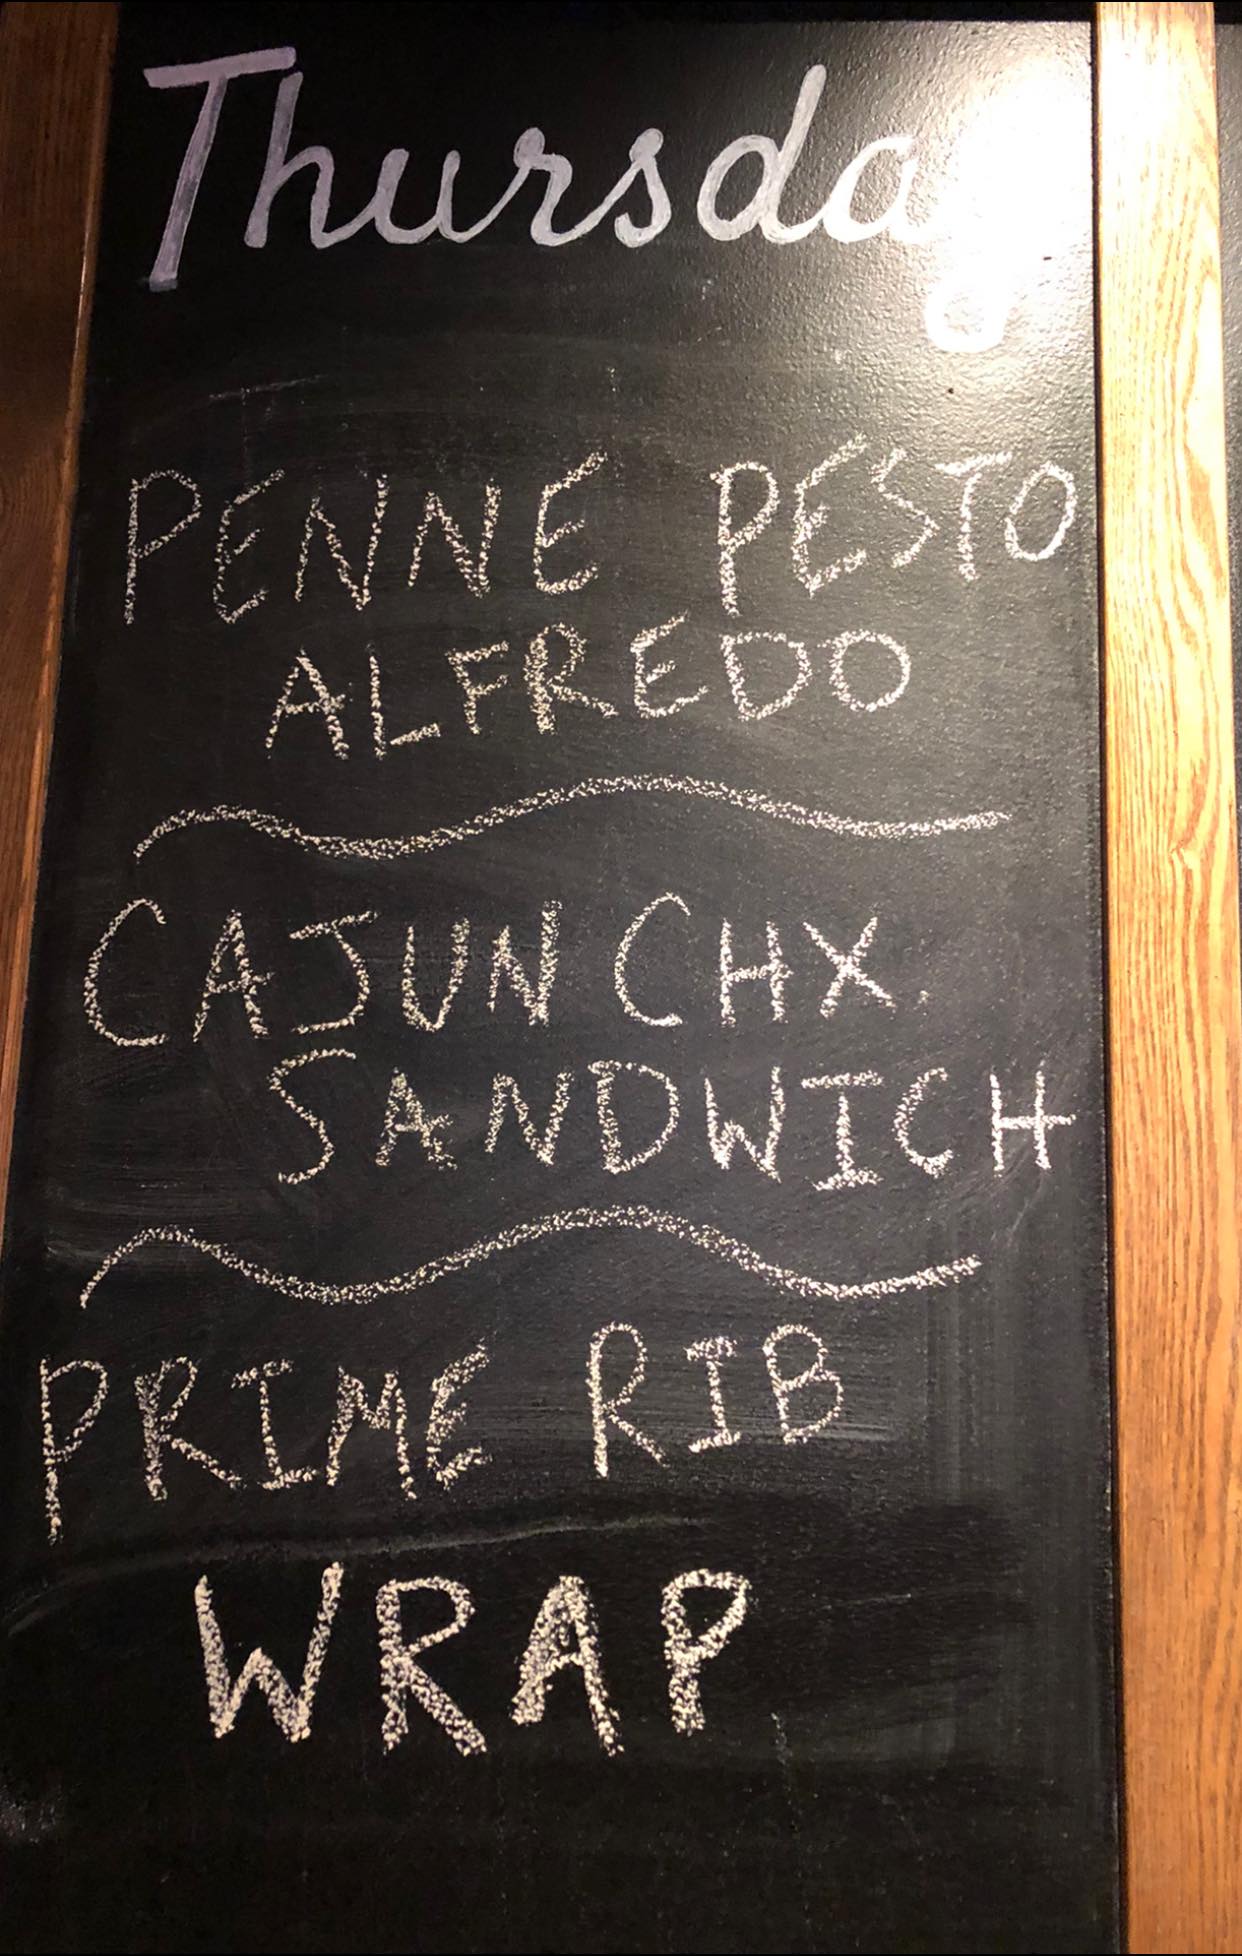 Thursday
PENNE PESTO
ALFREDO
CAJUN CHX.
SANDWICH
PRIME RIB
WRAP